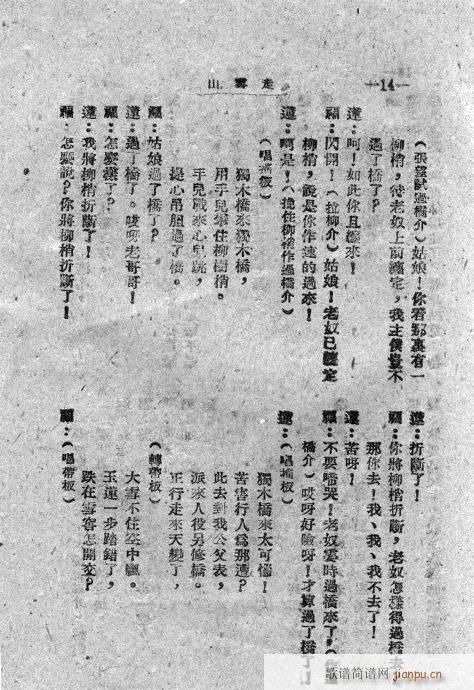 走雪山
—14—
（張登試過橋介）姑娘！你看那裏有一
柳梢，待老奴上前纏定，我主僕豈不
過了橋了？
蓮：呵！如此你且纏來！
福：閃開！（拉柳介）姑娘！老奴已纏定
柳梢，說是你作速的過來！
蓮：呵是！（挽住柳梢作過橋介）
（唱搖板）
獨木橋來獨木橋，
用手兒攀住柳樹梢。
手兒戰來心兒跳，
提心吊胆過了橋。
福：姑娘過了橋了？
蓮：過了橋了。哎呀老哥哥！
福：怎麼樣了？
蓮：我將柳梢折斷了！
福：怎麼說？你將柳梢折斷了！
蓮：折斷了！
福：你將柳梢折斷，老奴怎樣得過橋去
那你去！我、我、我不去了！
蓮：苦呀！
福：不要啼哭！老奴霎時過橋來了，（
橋介）哎呀好險呀！才算過了橋了！
蓮：（唱搖板）
獨木橋來太可惱！
苦害行人為那遭？
此去對我公父表，
派來人役另修橋。
正行走來天變了，
（轉帶板）
大雪不住空中飄。
玉蓮一步踏錯了，
跌在雪窖怎開交？
福：（唱帶板）
歌谱简谱网
jianpu.cn